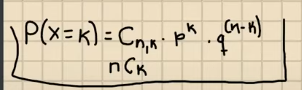 P(x=k) = C_{n,k} · p^k · q^{(n-k)}
nCk